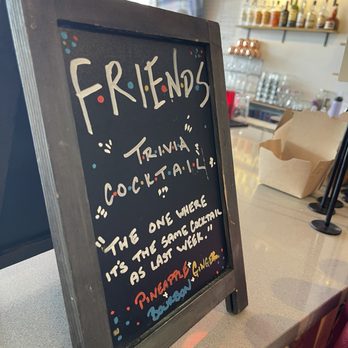 F.R.I.E.N.D.S
"TRIVIA
C.O.C.K.T.A.I.L"
"THE ONE WHERE
IT'S THE SAME COCKTAIL
AS LAST WEEK."
PINEAPPLE + GINGER +
BOURBON